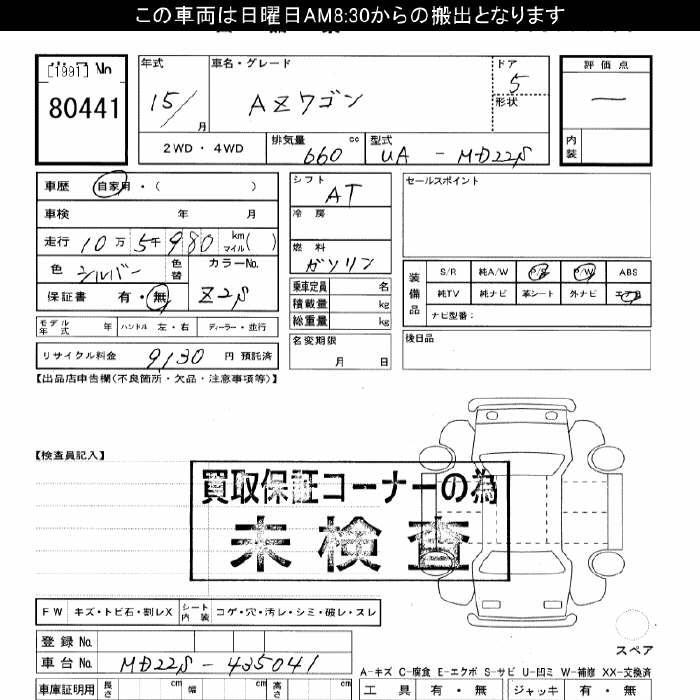 この車両は日曜日AM8:30からの搬出となります
[1991] No
80441
年式
15/
月
車名・グレード
AZワゴン
ドア
5
形状
評価点
—
内装
2WD・4WD
排気量
660 cc
型式
UA - MD22S
車歴 自家用・( )
車検 年 月
走行 10万 5千 980 km マイル( )
色 シルバー
色替
カラーNo.
Z2S
保証書 有・無
モデル年式 年 ハンドル 左・右 ディーラー・並行
リサイクル料金 9130 円 預託済
シフト
AT
冷房
燃料
ガソリン
乗車定員 名
積載量 kg
総重量 kg
名変期限
月 日
セールスポイント
装備品
S/R 純A/W P/S P/W ABS
純TV 純ナビ 革シート 外ナビ エアB
ナビ型番:
後日品
【出品店申告欄(不良箇所・欠品・注意事項等)】
【検査員記入】
買取保証コーナーの為
未検査
FW キズ・トビ石・割レX シート内装 コゲ・穴・汚レ・シミ・破レ・スレ
登録No.
車台No. MD22S-435041
車庫証明用 長さ cm 幅 cm 高さ cm
スペア
A-キズ C-腐食 E-エクボ S-サビ U-凹ミ W-補修 XX-交換済
工具 有・無 ジャッキ 有・無